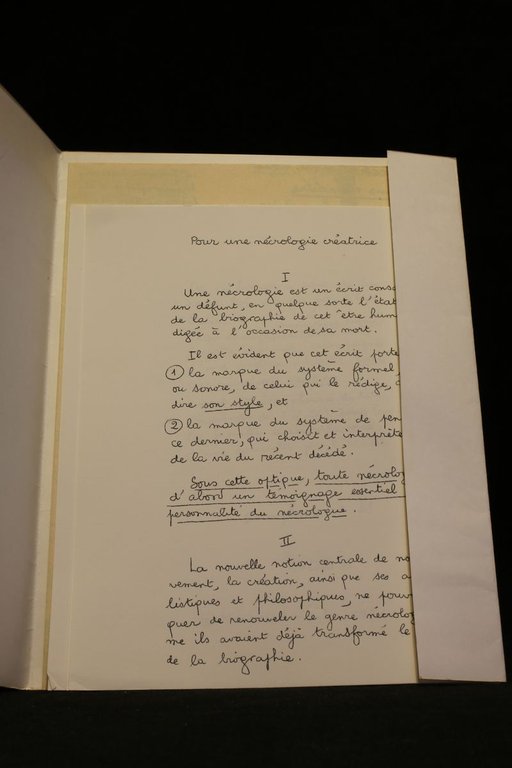 Pour une nécrologie créatrice
I
Une nécrologie est un écrit cons
un défunt, en quelque sorte l'état
de la biographie de cet être hum
digée à l'occasion de sa mort.
Il est évident que cet écrit porte
① la marque du système formel,
ou sonore, de celui qui le rédige,
dire son style, et
② la marque du système de pen
ce dernier, qui choisit et interprète
de la vie du récent décédé.
Sous cette optique, toute nécrolog
d'abord un témoignage essentiel
personnalité du nécrologue.
II
La nouvelle notion centrale de no
vement, la création, ainsi que ses a
listiques et philosophiques, ne pouv
quer de renouveler le genre nécrolog
me ils avaient déjà transformé le
de la biographie.